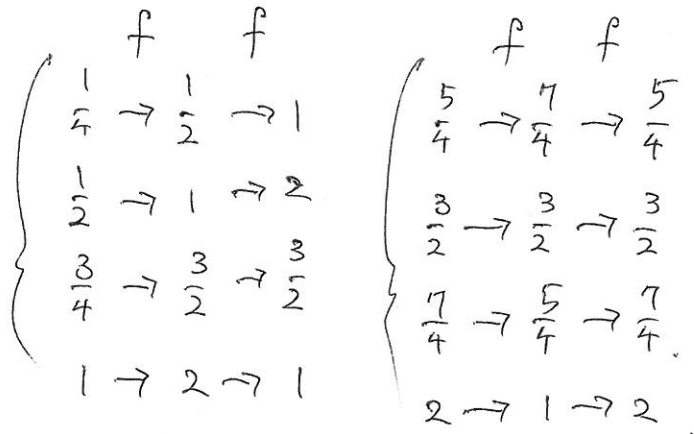 f f
1/4 → 1/2 → 1
1/2 → 1 → 2
3/4 → 3/2 → 3/2
1 → 2 → 1
f f
5/4 → 7/4 → 5/4
3/2 → 3/2 → 3/2
7/4 → 5/4 → 7/4.
2 → 1 → 2